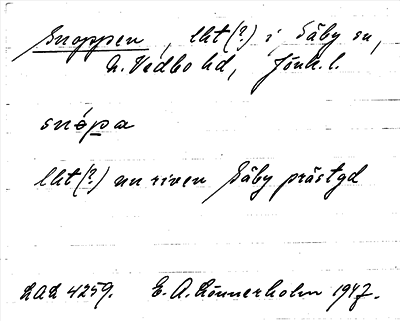 Snoppen, lht(?) i Säby sn,
N. Vedbo hd, Jönk. l.
snópa
lht(?) nu riven Säby prästgd
LAL 4259. E. A. Lönnerholm 1947.